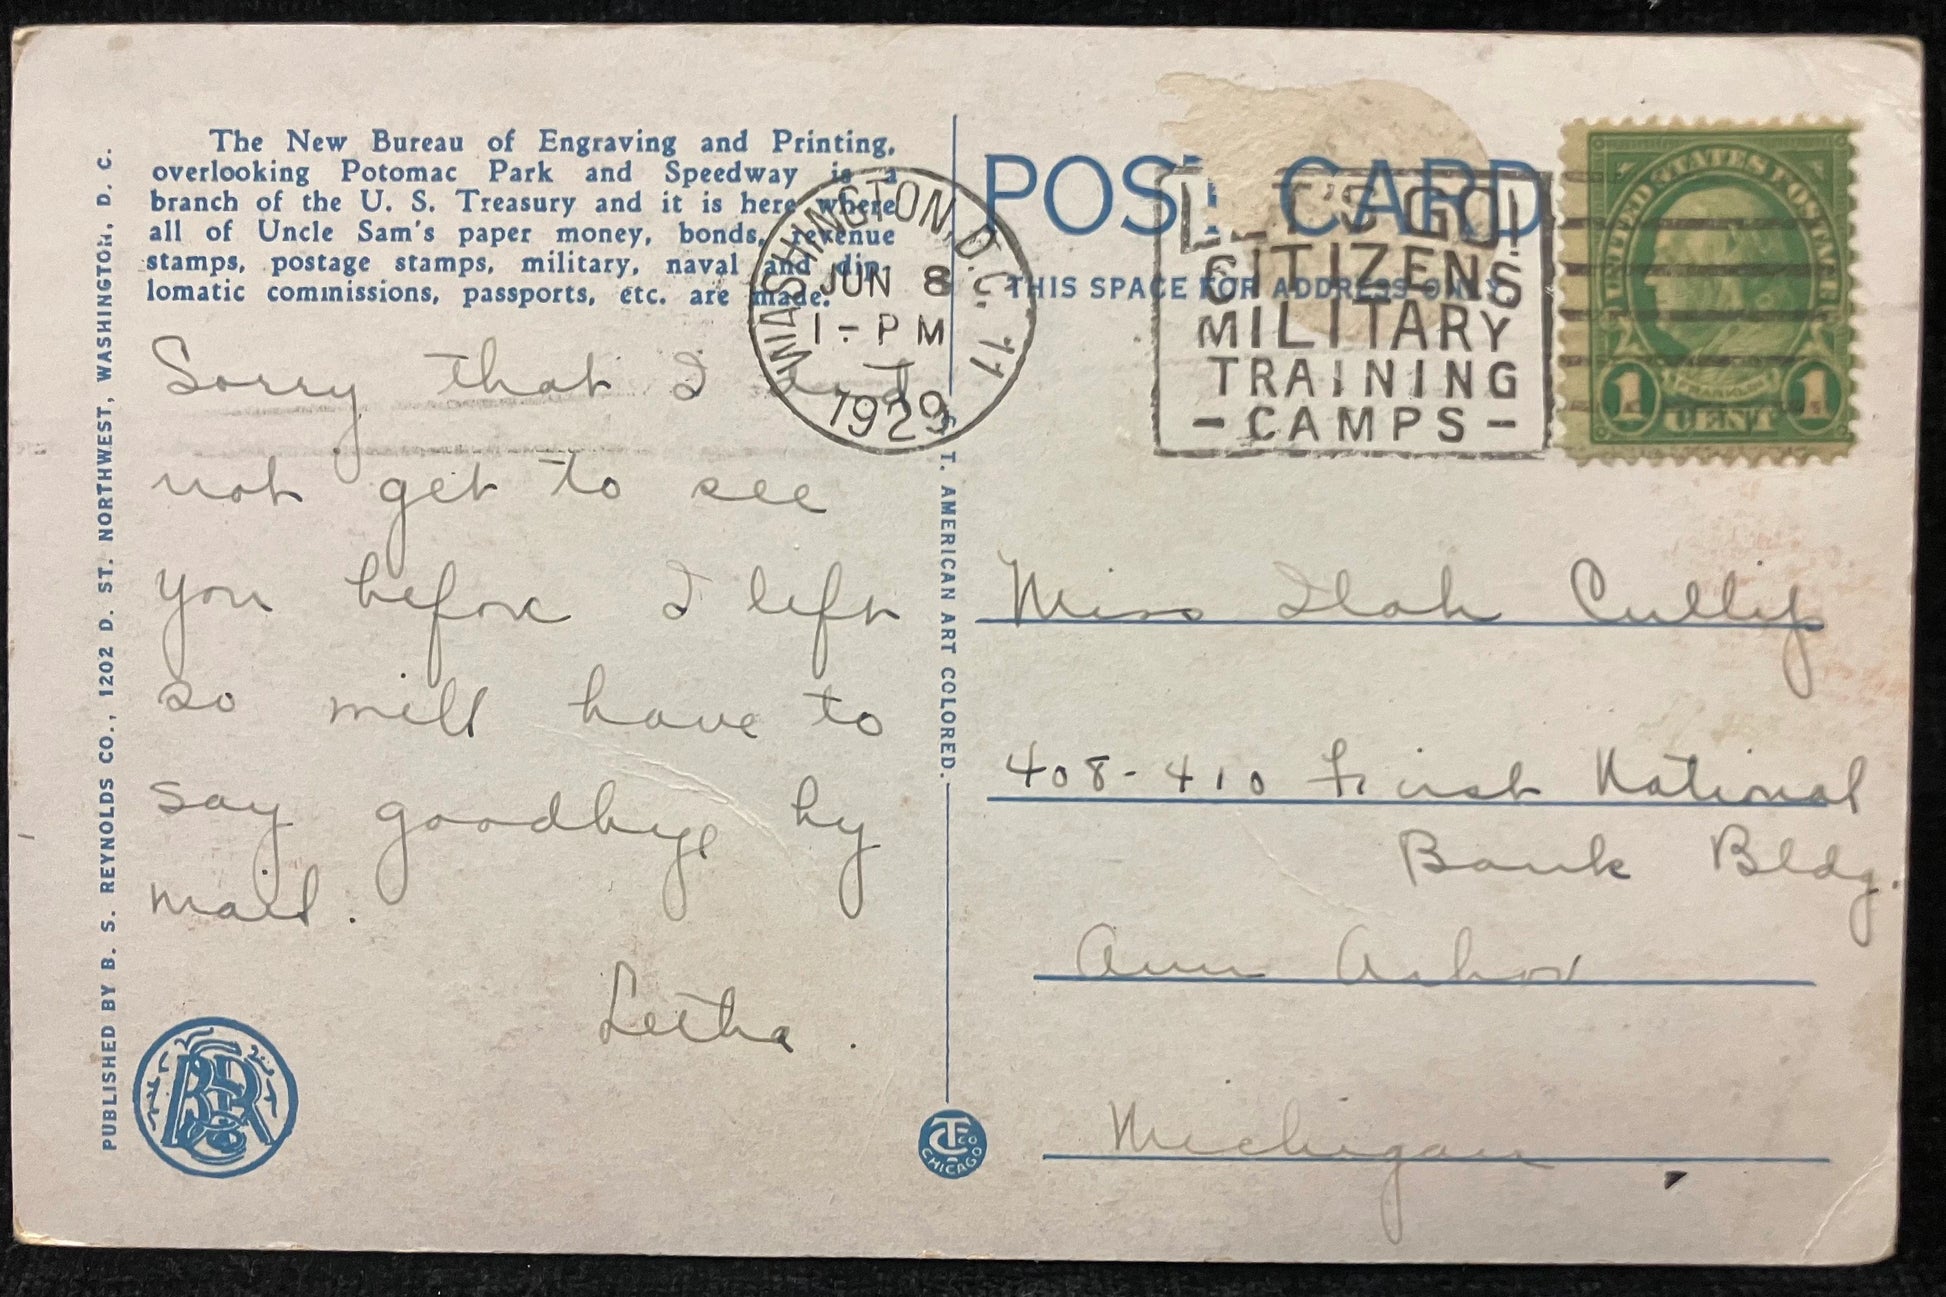 The New Bureau of Engraving and Printing,
overlooking Potomac Park and Speedway is a
branch of the U. S. Treasury and it is here where
all of Uncle Sam's paper money, bonds, revenue
stamps, postage stamps, military, naval and dip-
lomatic commissions, passports, etc. are made.
Sorry that I did
not get to see
you before I left
so will have to
say goodbye by
mail.
Letha.
PUBLISHED BY B. S. REYNOLDS CO., 1202 D. ST. NORTHWEST, WASHINGTON, D. C.
BSR
WASHINGTON, D.C. 11
JUN 8
1-PM
1929
C. T. AMERICAN ART COLORED.
CTCO
CHICAGO
POST CARD
THIS SPACE FOR ADDRESS ONLY
LET'S GO!
CITIZENS
MILITARY
TRAINING
-CAMPS-
UNITED STATES POSTAGE
FRANKLIN
1 CENT 1
Miss Ilah
408-410 First National
Bank Bldg.
Ann Arbor
Michigan